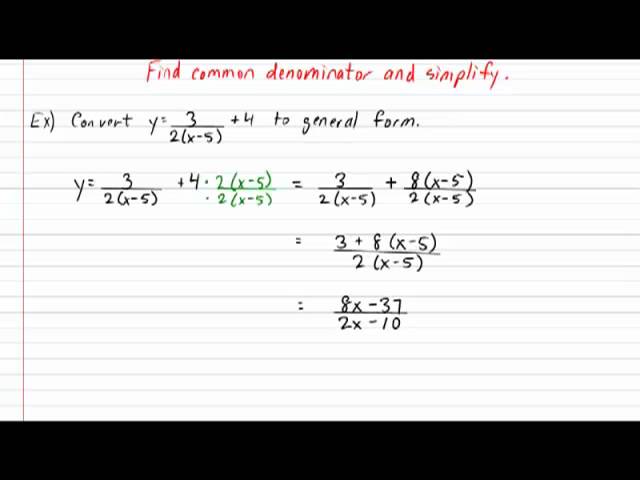 Find common denominator and simplify.
Ex) Convert y = 3/2(x-5) + 4 to general form.
y = 3/2(x-5) + 4 · 2(x-5)/· 2(x-5) = 3/2(x-5) + 8(x-5)/2(x-5)
= 3 + 8(x-5)/2(x-5)
= 8x-37/2x-10